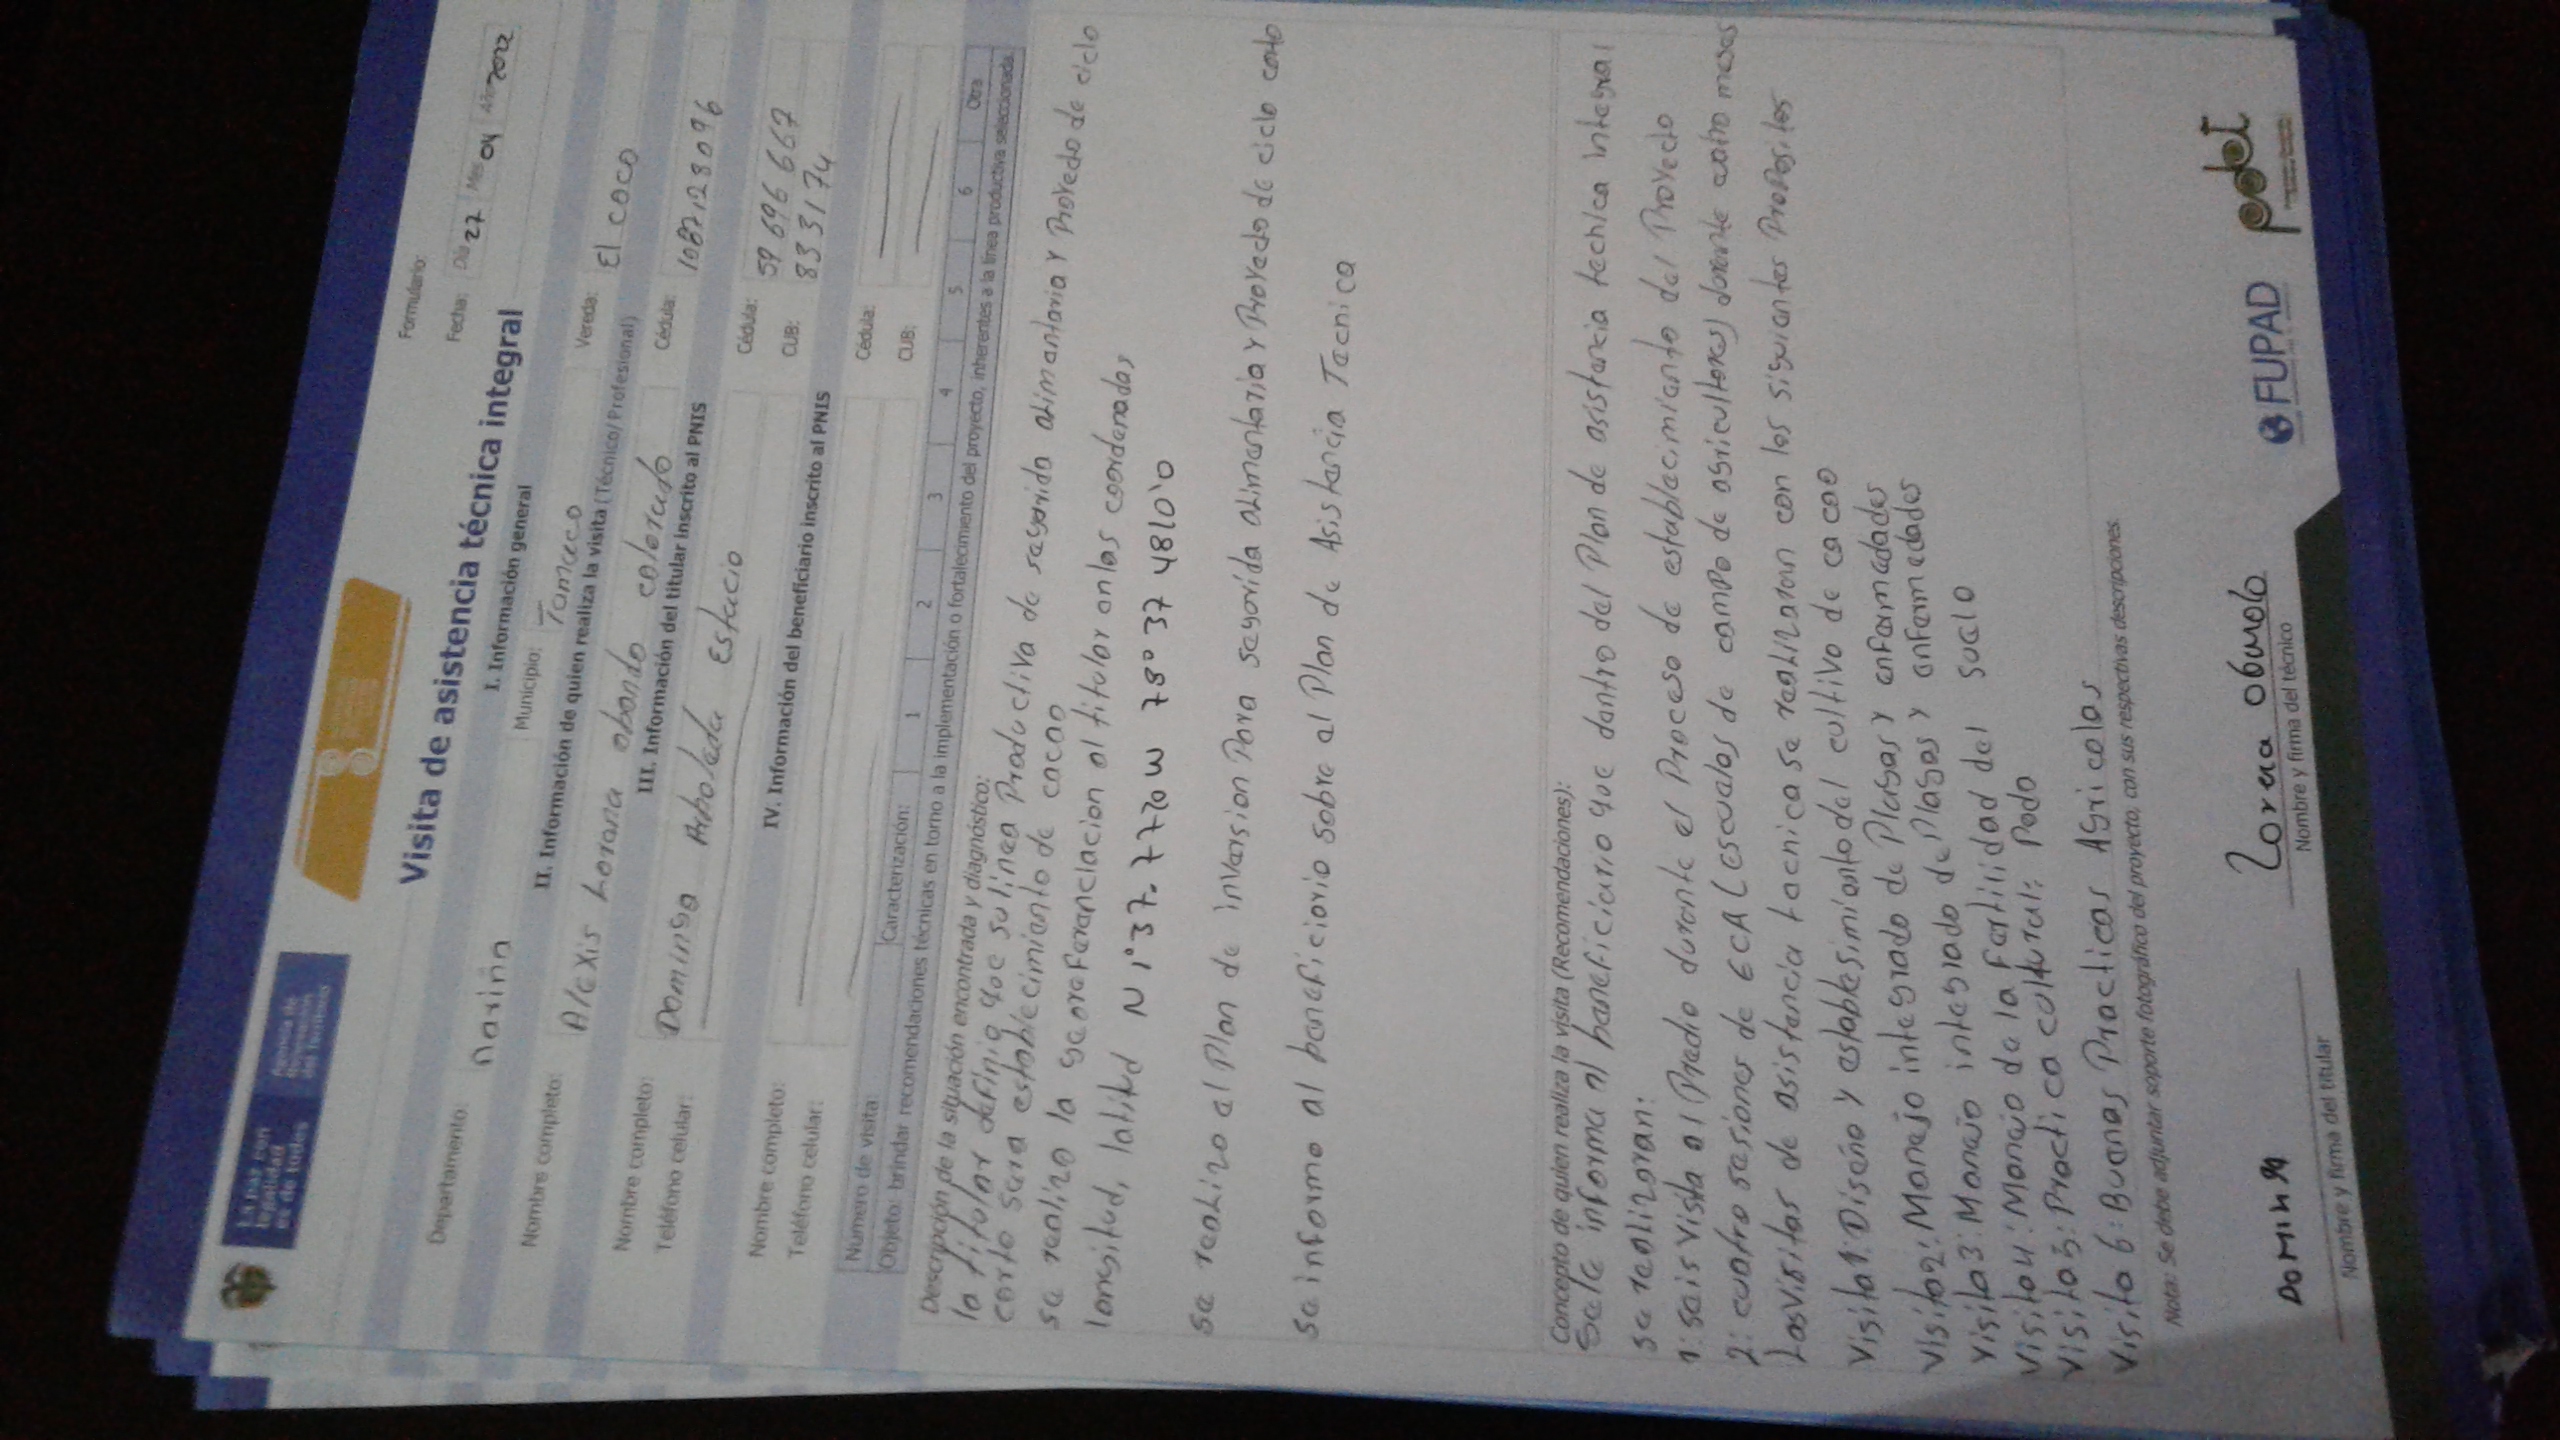 La paz con
legalidad
es de todos
Agencia de
Renovación
del Territorio
Visita de asistencia técnica integral
Formulario:
Fecha: Día 27 Mes 04 Año 2022
I. Información general
Departamento: nariño Municipio: Tumaco Vereda: El coco
II. Información de quien realiza la visita (Técnico/Profesional)
Nombre completo: Alexis Lorana obando colorado Cédula: 1087128096
III. Información del titular inscrito al PNIS
Nombre completo: Dominga Arboleda Estacio Cédula: 59 696 667
Teléfono celular: CUB: 833174
IV. Información del beneficiario inscrito al PNIS
Nombre completo: Cédula:
Teléfono celular: CUB:
Número de visita: Caracterización: 1 2 3 4 5 6 Otra
Objeto: brindar recomendaciones técnicas en torno a la implementación o fortalecimiento del proyecto, inherentes a la línea productiva seleccionada.
Descripción de la situación encontrada y diagnóstico:
la titular definio que su linea Productiva de segurida alimentaria y Proyedo de ciclo
corto sera establecimiento de cacao
se realizo la georeferenciacion al titular en las coordenadas
longitud, latitud N 1°37.7770 W 78° 37 4810'0
se realizo el Plan de inversion Para segurida alimentaria y Proyecto de ciclo corto
se informo al beneficiario sobre el Plan de Asistancia Tecnica
Concepto de quien realiza la visita (Recomendaciones):
Se le informa al beneficiario que dentro del Plan de asistencia technica integral
se realizaran:
1: seis visita al Predio durante el Proceso de establecimiento del Proyecto
2: cuatro sesiones de ECA (escuelas de campo de agricultores) durante catro meses
Las visitas de asistencia tecnica se realizaran con los siguientes Propositos
Visita 1: Diseño y establesimiento del cultivo de cacao
Visita 2: Manejo integrado de Plagas y enfermedades
Visita 3: Manejo integrado de Plagas y enfermedades
Visita 4: Manejo de la fertilidad del suelo
Visita 5: Practica cultural: Poda
Visita 6: Buenas Practicas Agricolas
Nota: Se debe adjuntar soporte fotográfico del proyecto, con sus respectivas descripciones.
Nombre y firma del titular
Lorena obando
Nombre y firma del técnico
FUPAD
pdet